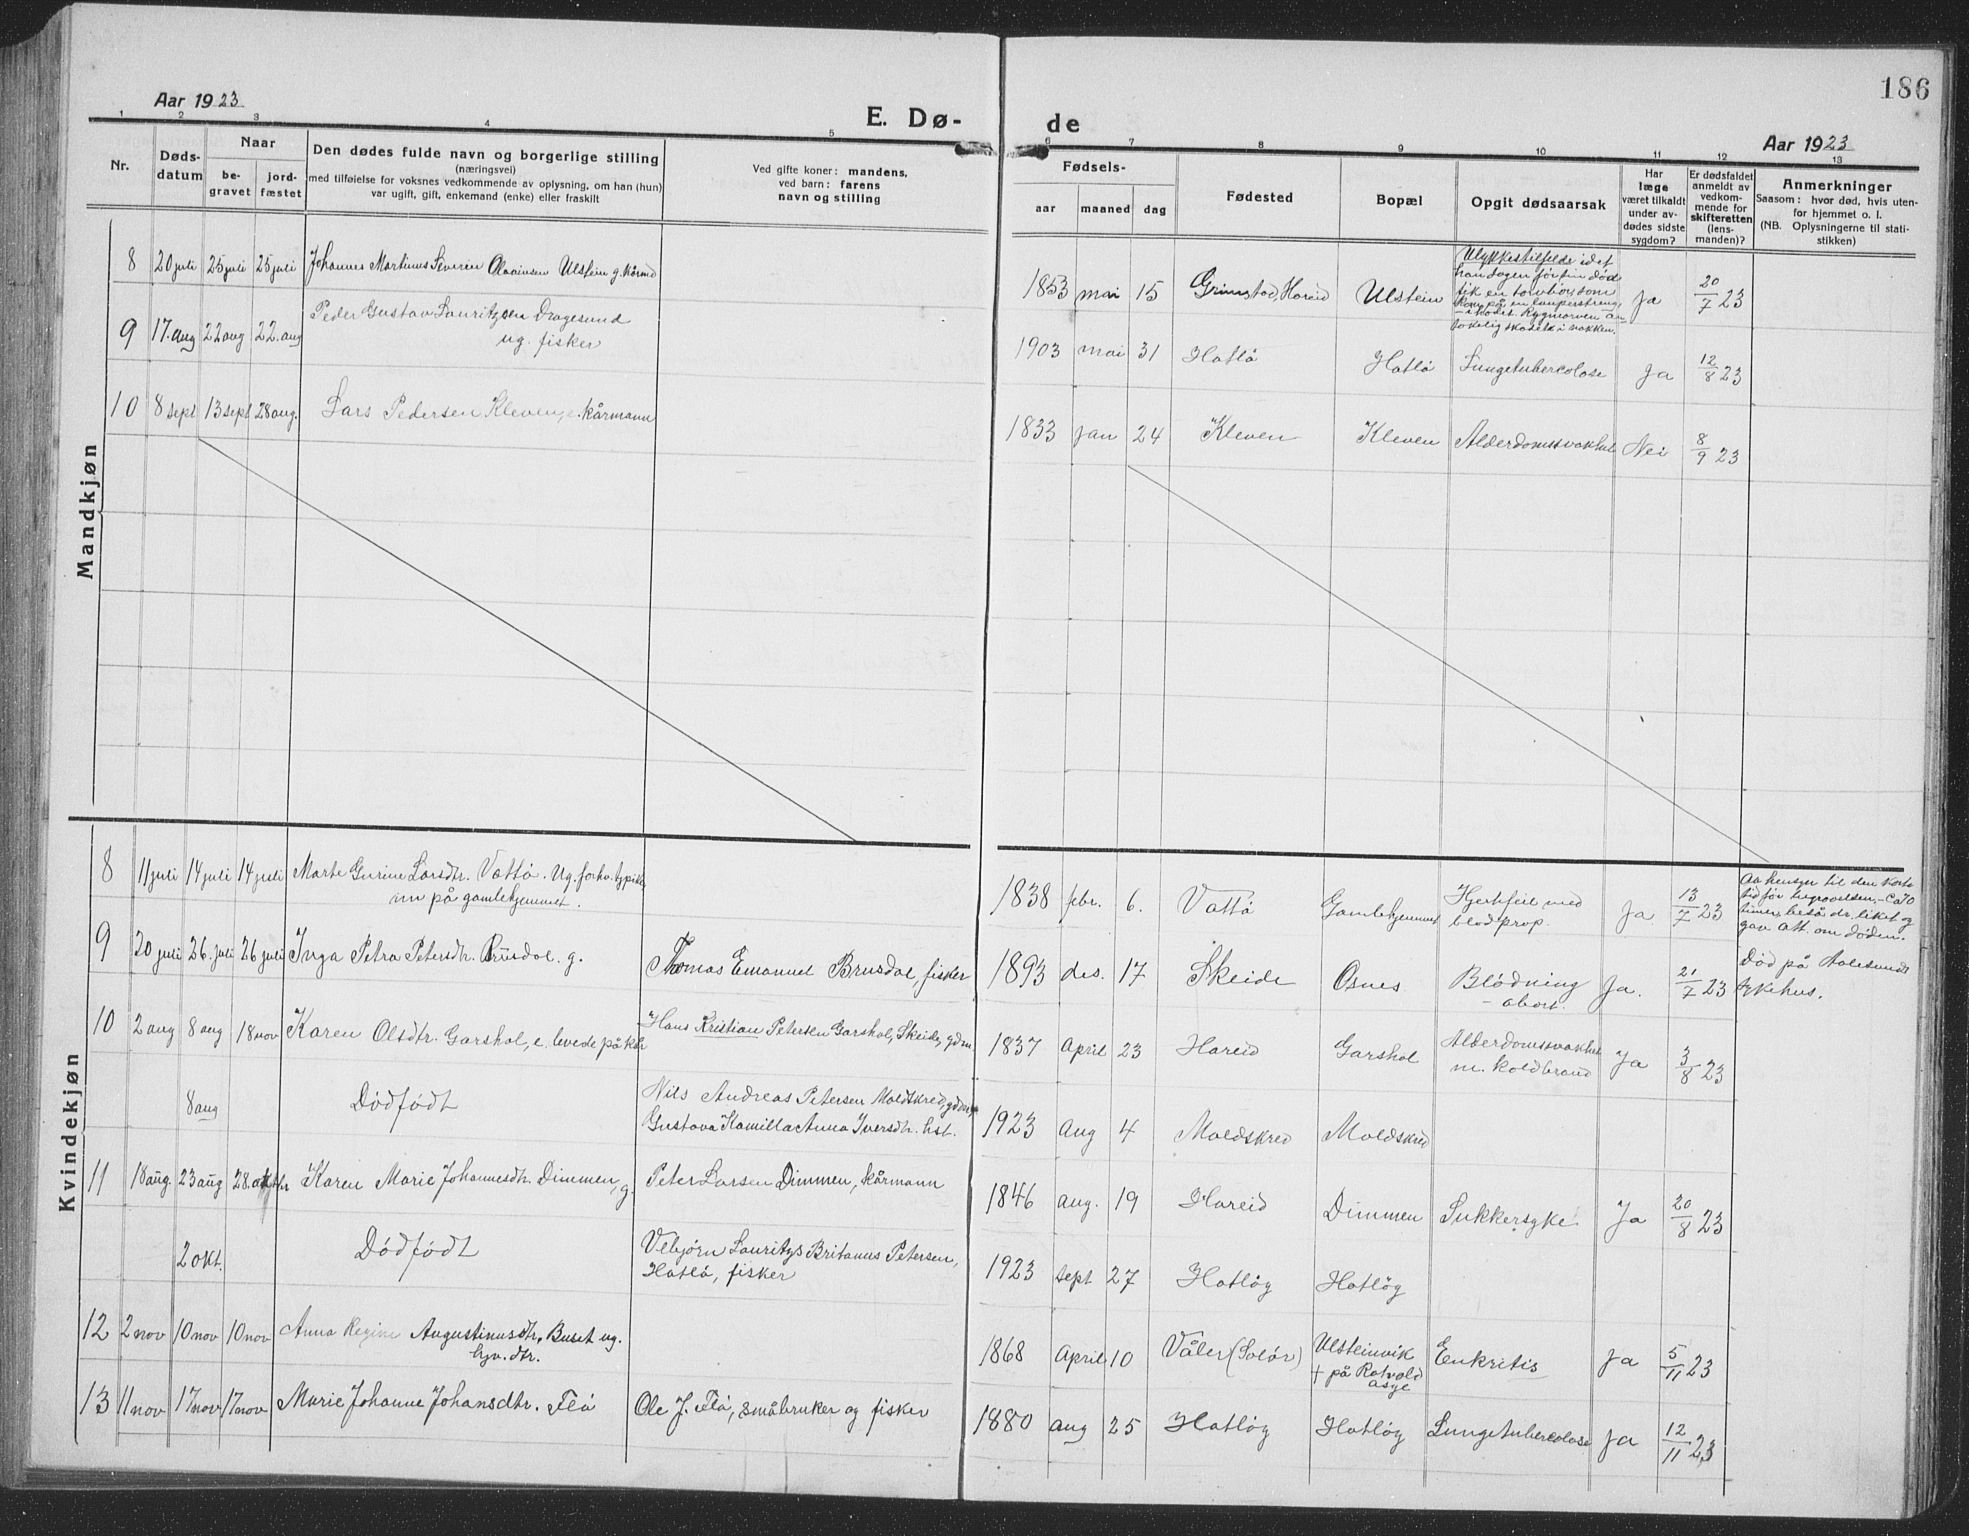 186
Aar 1923
E. Dø-
de
Aar 1923
1 2 3 4 5 6 7 8 9 10 11 12 13
Nr.
Døds-
datum
Naar
be-
gravet
jord-
fæstet
Den dødes fulde navn og borgerlige stilling
(næringsvei)
med tilføielse for voksnes vedkommende av oplysning, om han (hun)
var ugift, gift, enkemand (enke) eller fraskilt
Ved gifte koner: mandens,
ved barn: farens
navn og stilling
Fødsels-
aar maaned dag
Fødested
Bopæl
Opgit dødsaarsak
Har
læge
været tilkaldt
under av-
dødes sidste
sygdom?
Er dødsfaldet
anmeldt av
vedkom-
mende for
skifteretten
(lens-
manden)?
Anmerkninger
Saasom: hvor død, hvis uten-
for hjemmet o. l.
(NB. Oplysningerne til stati-
stikken)
Mandkjøn
8 20 juli 25 juli 25 juli Johannes Martinus Severin Olaainsen Ulstein g. kårmd
1853 mai 15 Grimstad, Hareid Ulstein
Ulykkestilfelde idet
han dagen før sin død
fik en
på en
Rygmarven
skadet i nakken.
Ja 20/7 23
9 17. aug 22 aug 22. aug Peder Gustav Lauritzsen Dragesund
ug. fisker
1903 mai 31 Hatlö Hatlö Lungetuberculose Ja 12/8 23
10 8 sept 13 sept 28 aug. Lars Pedersen Kleven, e. kårmann
1833 jan 24 Kleven Kleven Alderdomssvakhet Nei 8/9 23
Kvindekjøn
8 11 juli 14 juli 14 juli Marte Gurine Larsdtr. Vattö. Ug. forhv.
på gamlehjemmet.
1838 febr. 6. Vattö Gamlehjemmet Hjertfeil med
blodprop. Ja 13/7 23
Av hensyn til den korte
tid før begravelsen, - ca 70
timer, beså dr. liket og
gav att. om døden.
9 20 juli 26. juli 26 juli Inga Petra Petersdtr. Brusdal. g.
Thomas Emanuel Brusdal, fisker
1893 des. 17 Skeide Osnes Blödning
- abort. Ja. 21/7 23
Död på Aalesunds
sykehus.
10 2 aug 8 aug 18 nov Karen Olsdtr. Garshol, e. levede på kår
Hans Kristian Petersen Garshol, Skeide, gdm.
1837 April 23 Hareid Garshol Alderdomssvakhet
m. koldbrand Ja 3/8 23
8 aug Dödfödt
Nils Andreas Petersen Moldskred, gdm, og
Gustava Kamilla Anna Iversdtr. hst.
1923 Aug 4 Moldskred Moldskred
11 18 aug. 23 aug 28. Karen Marie Johannesdtr. Dimmen, g.
Peter Larsen Dimmen, kårmann
1846 aug. 19 Hareid Dimmen Sukkersyke Ja 20/8 23
2 okt. Dödfödt
Vebjørn Lauritzs Britanus Petersen,
Hatlö, fisker
1923 sept 27 Hatlöy Hatlöy
12 2 nov 10 nov 10 nov Anna Regine Augustinusdtr. Buset ug.
hjv. dtr.
1868 April 10 Våler (Solör) Ulsteinvik
+ på Rotvold
asyl
Enkritis Ja 5/11 23
13 11 nov 17 nov 17 nov Marie Johanne Johansdtr. Flö
Ole J. Flö, småbruker og fisker
1880 aug 25 Hatlöy Hatlöy Lungetuberculose Ja 12/11 23